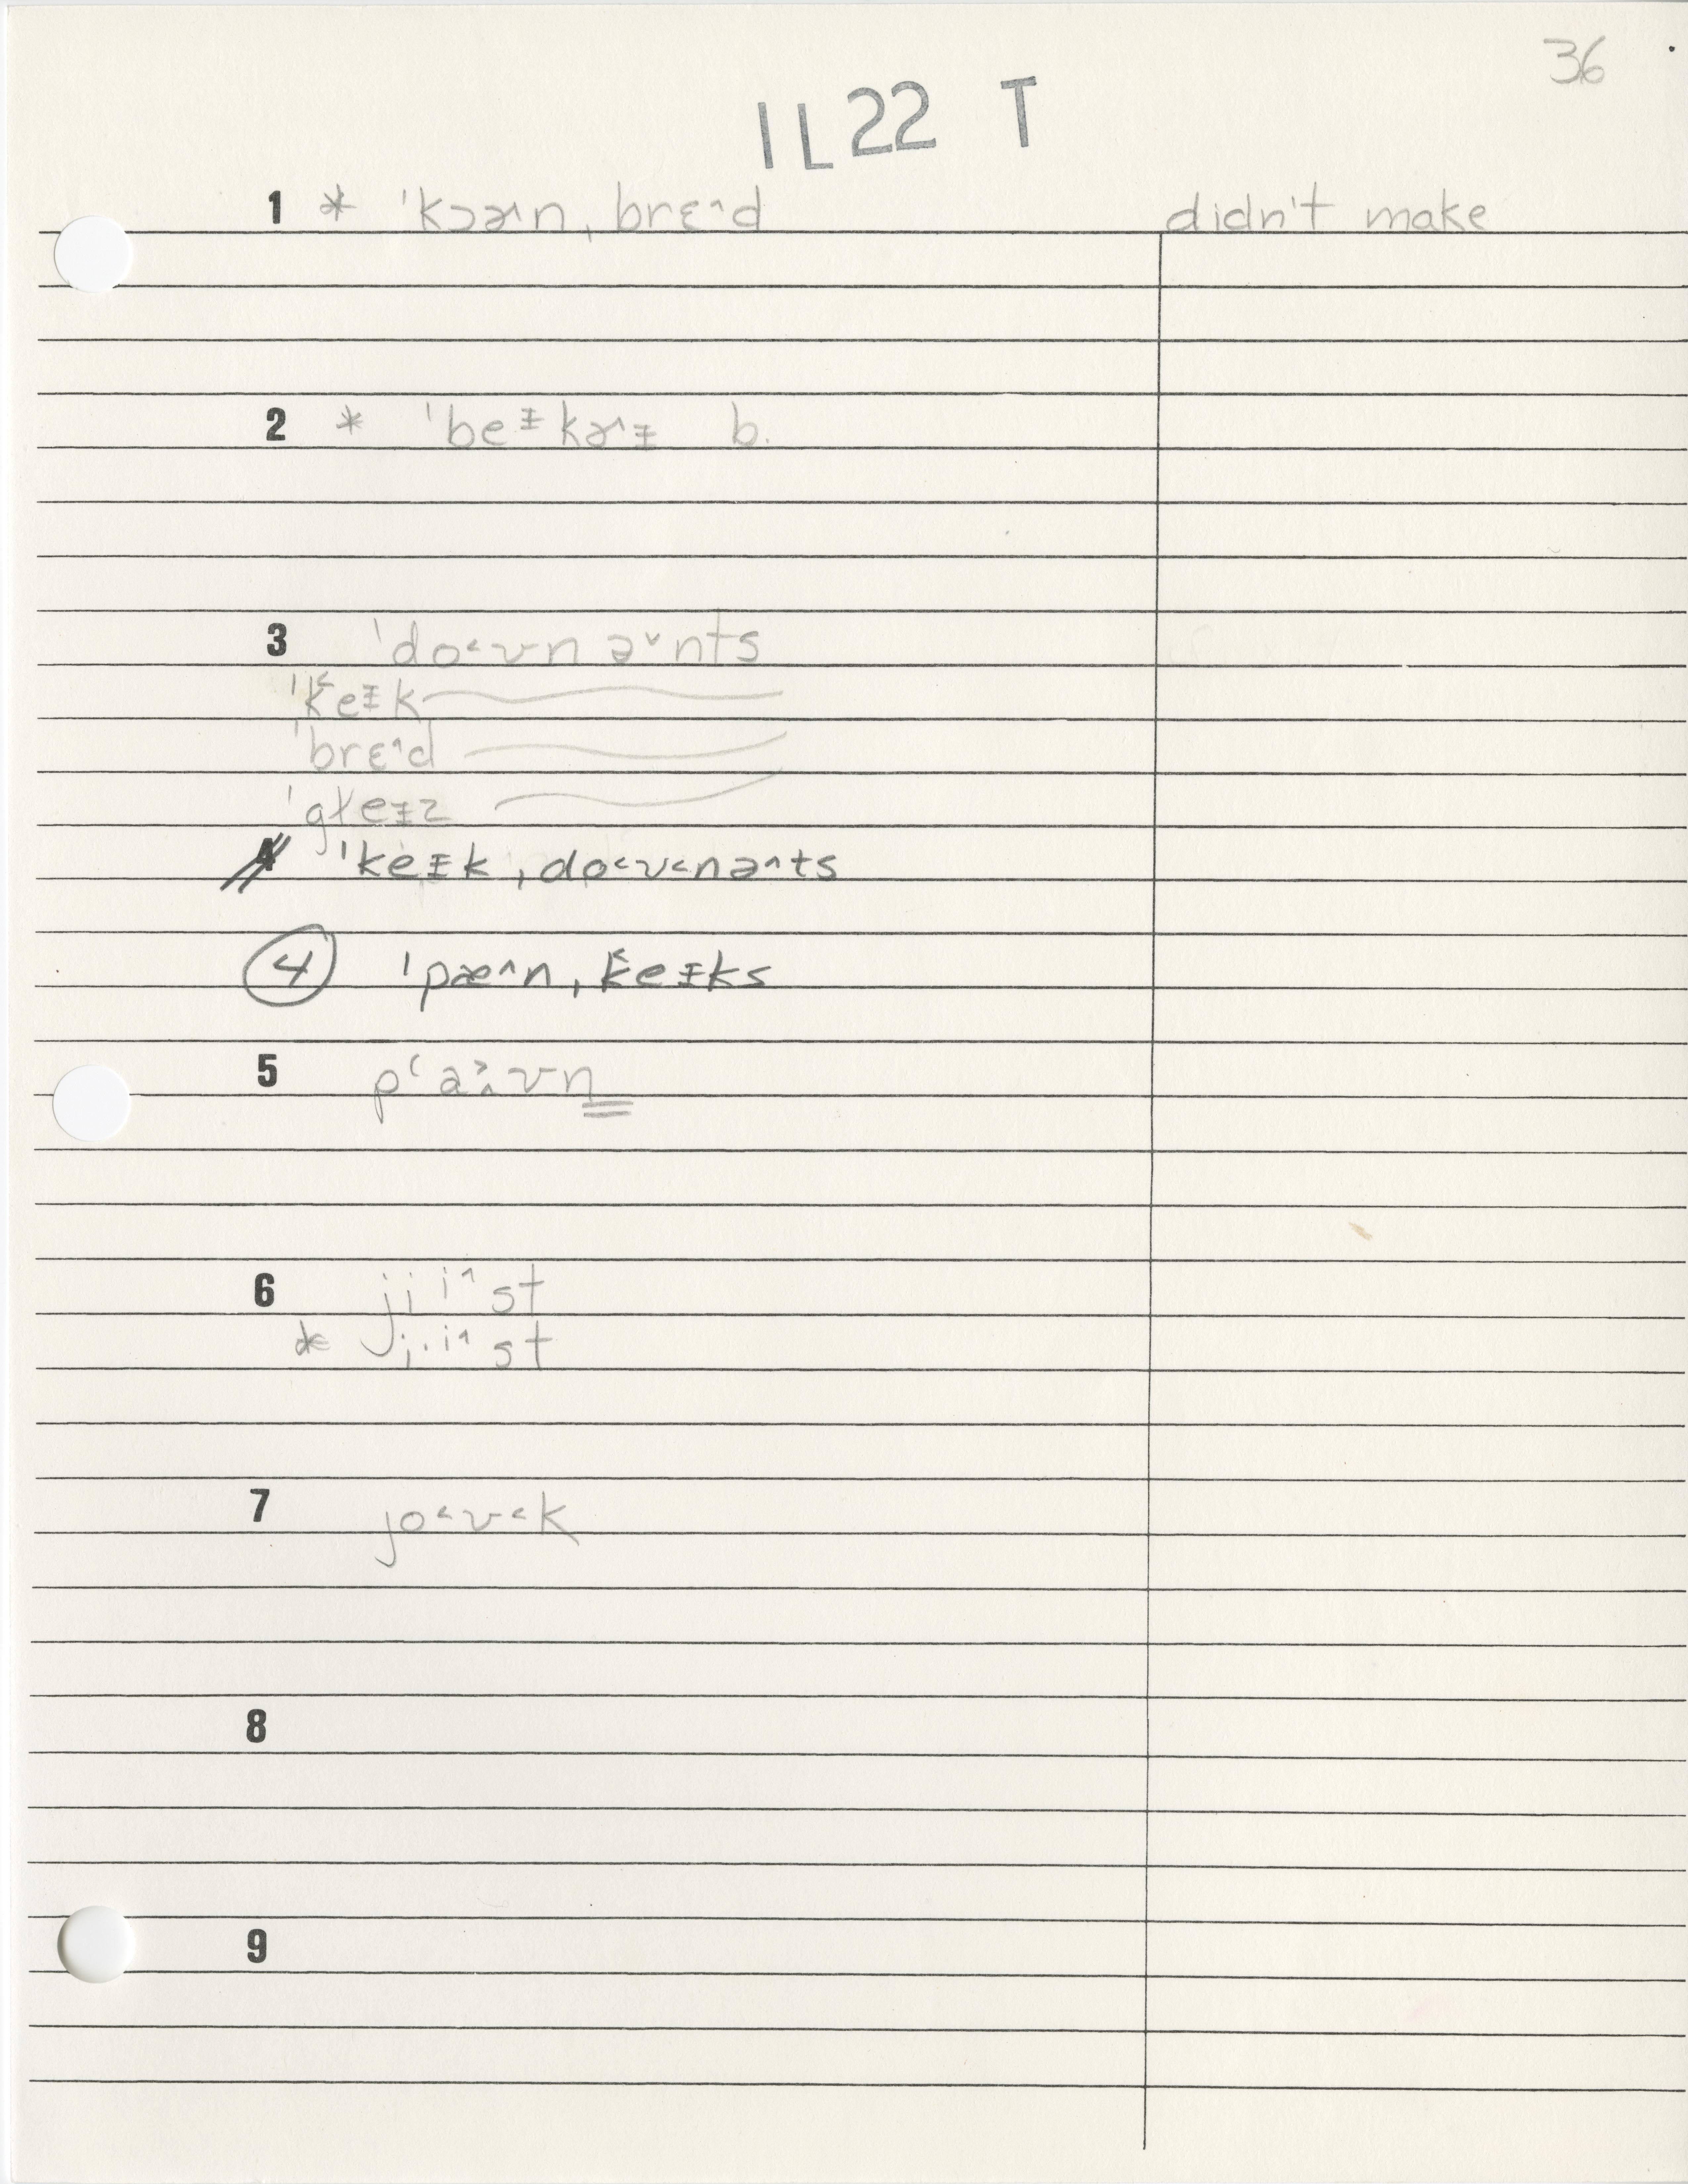 36
IL22 T
1 * ˈkɔɚ˄n ˌbrɛ˄d didn't make
2 * ˈbeᵻkɚ˄ᵻ b.
3 ˈdo˂ʊn ə˅nts
ˈk˂eᵻk
ˈbrɛ˄d
ˈgɫeᵻz
4 ˈkeᵻk ˌdo˂ʊ˂nə˄ts
4 ˈpæ˄n ˌk˂eᵻks
5 pʻa˃˄ʊn
6 jii˄st
* ji̩i˄st
7 jo˂ʊ˂k
8
9